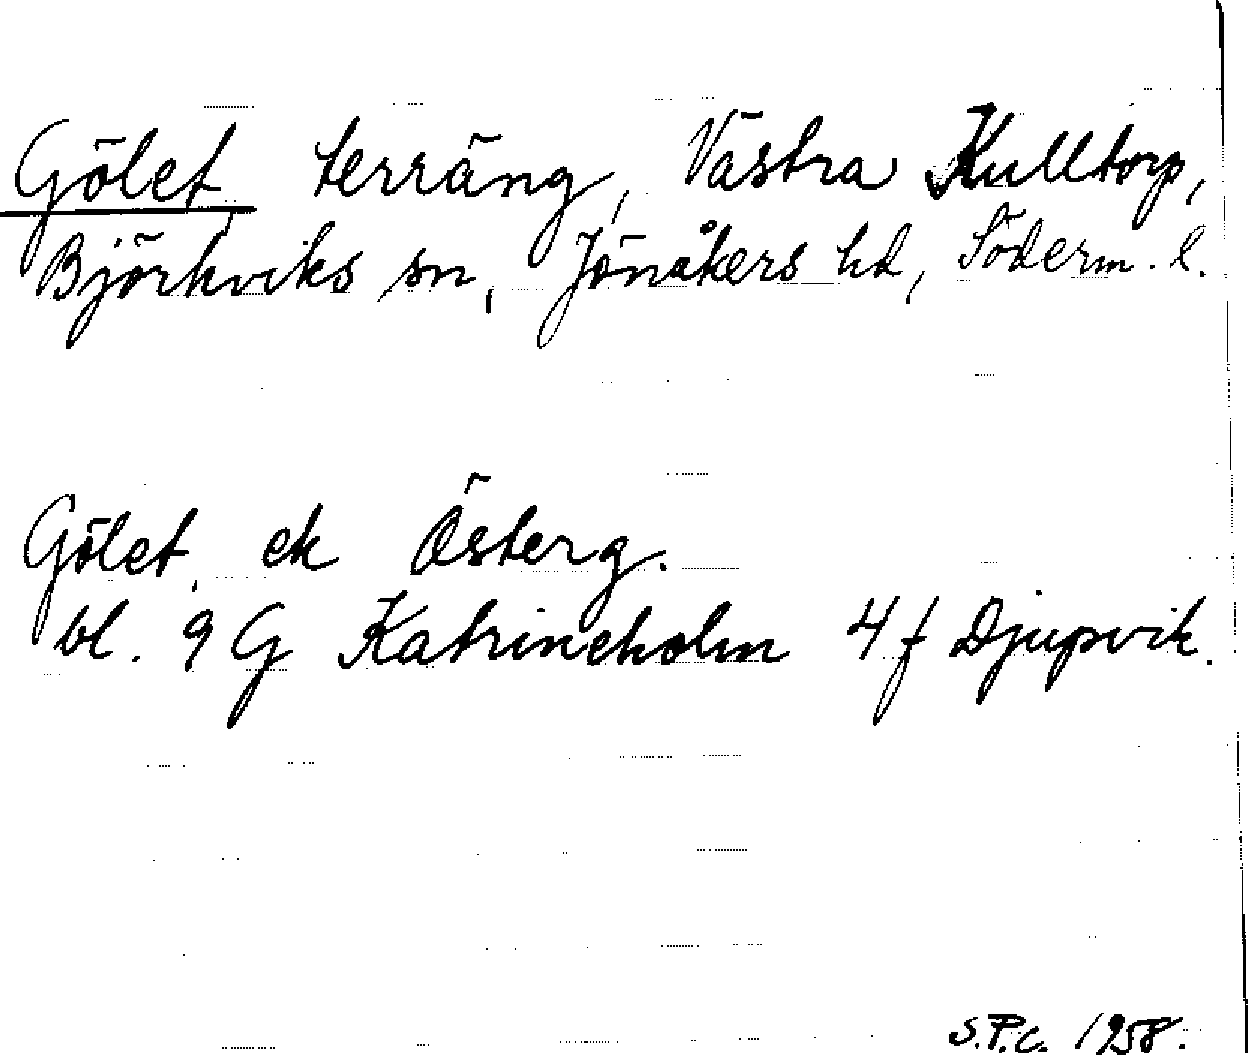 Gölet terräng, Västra Kulltorp,
Björkviks sn, Jönåkers hd, Söderm. l.
Gölet, ek Österg.
bl. 9 G Katrineholm 4 f Djupvik.
S.P.C. 1958.